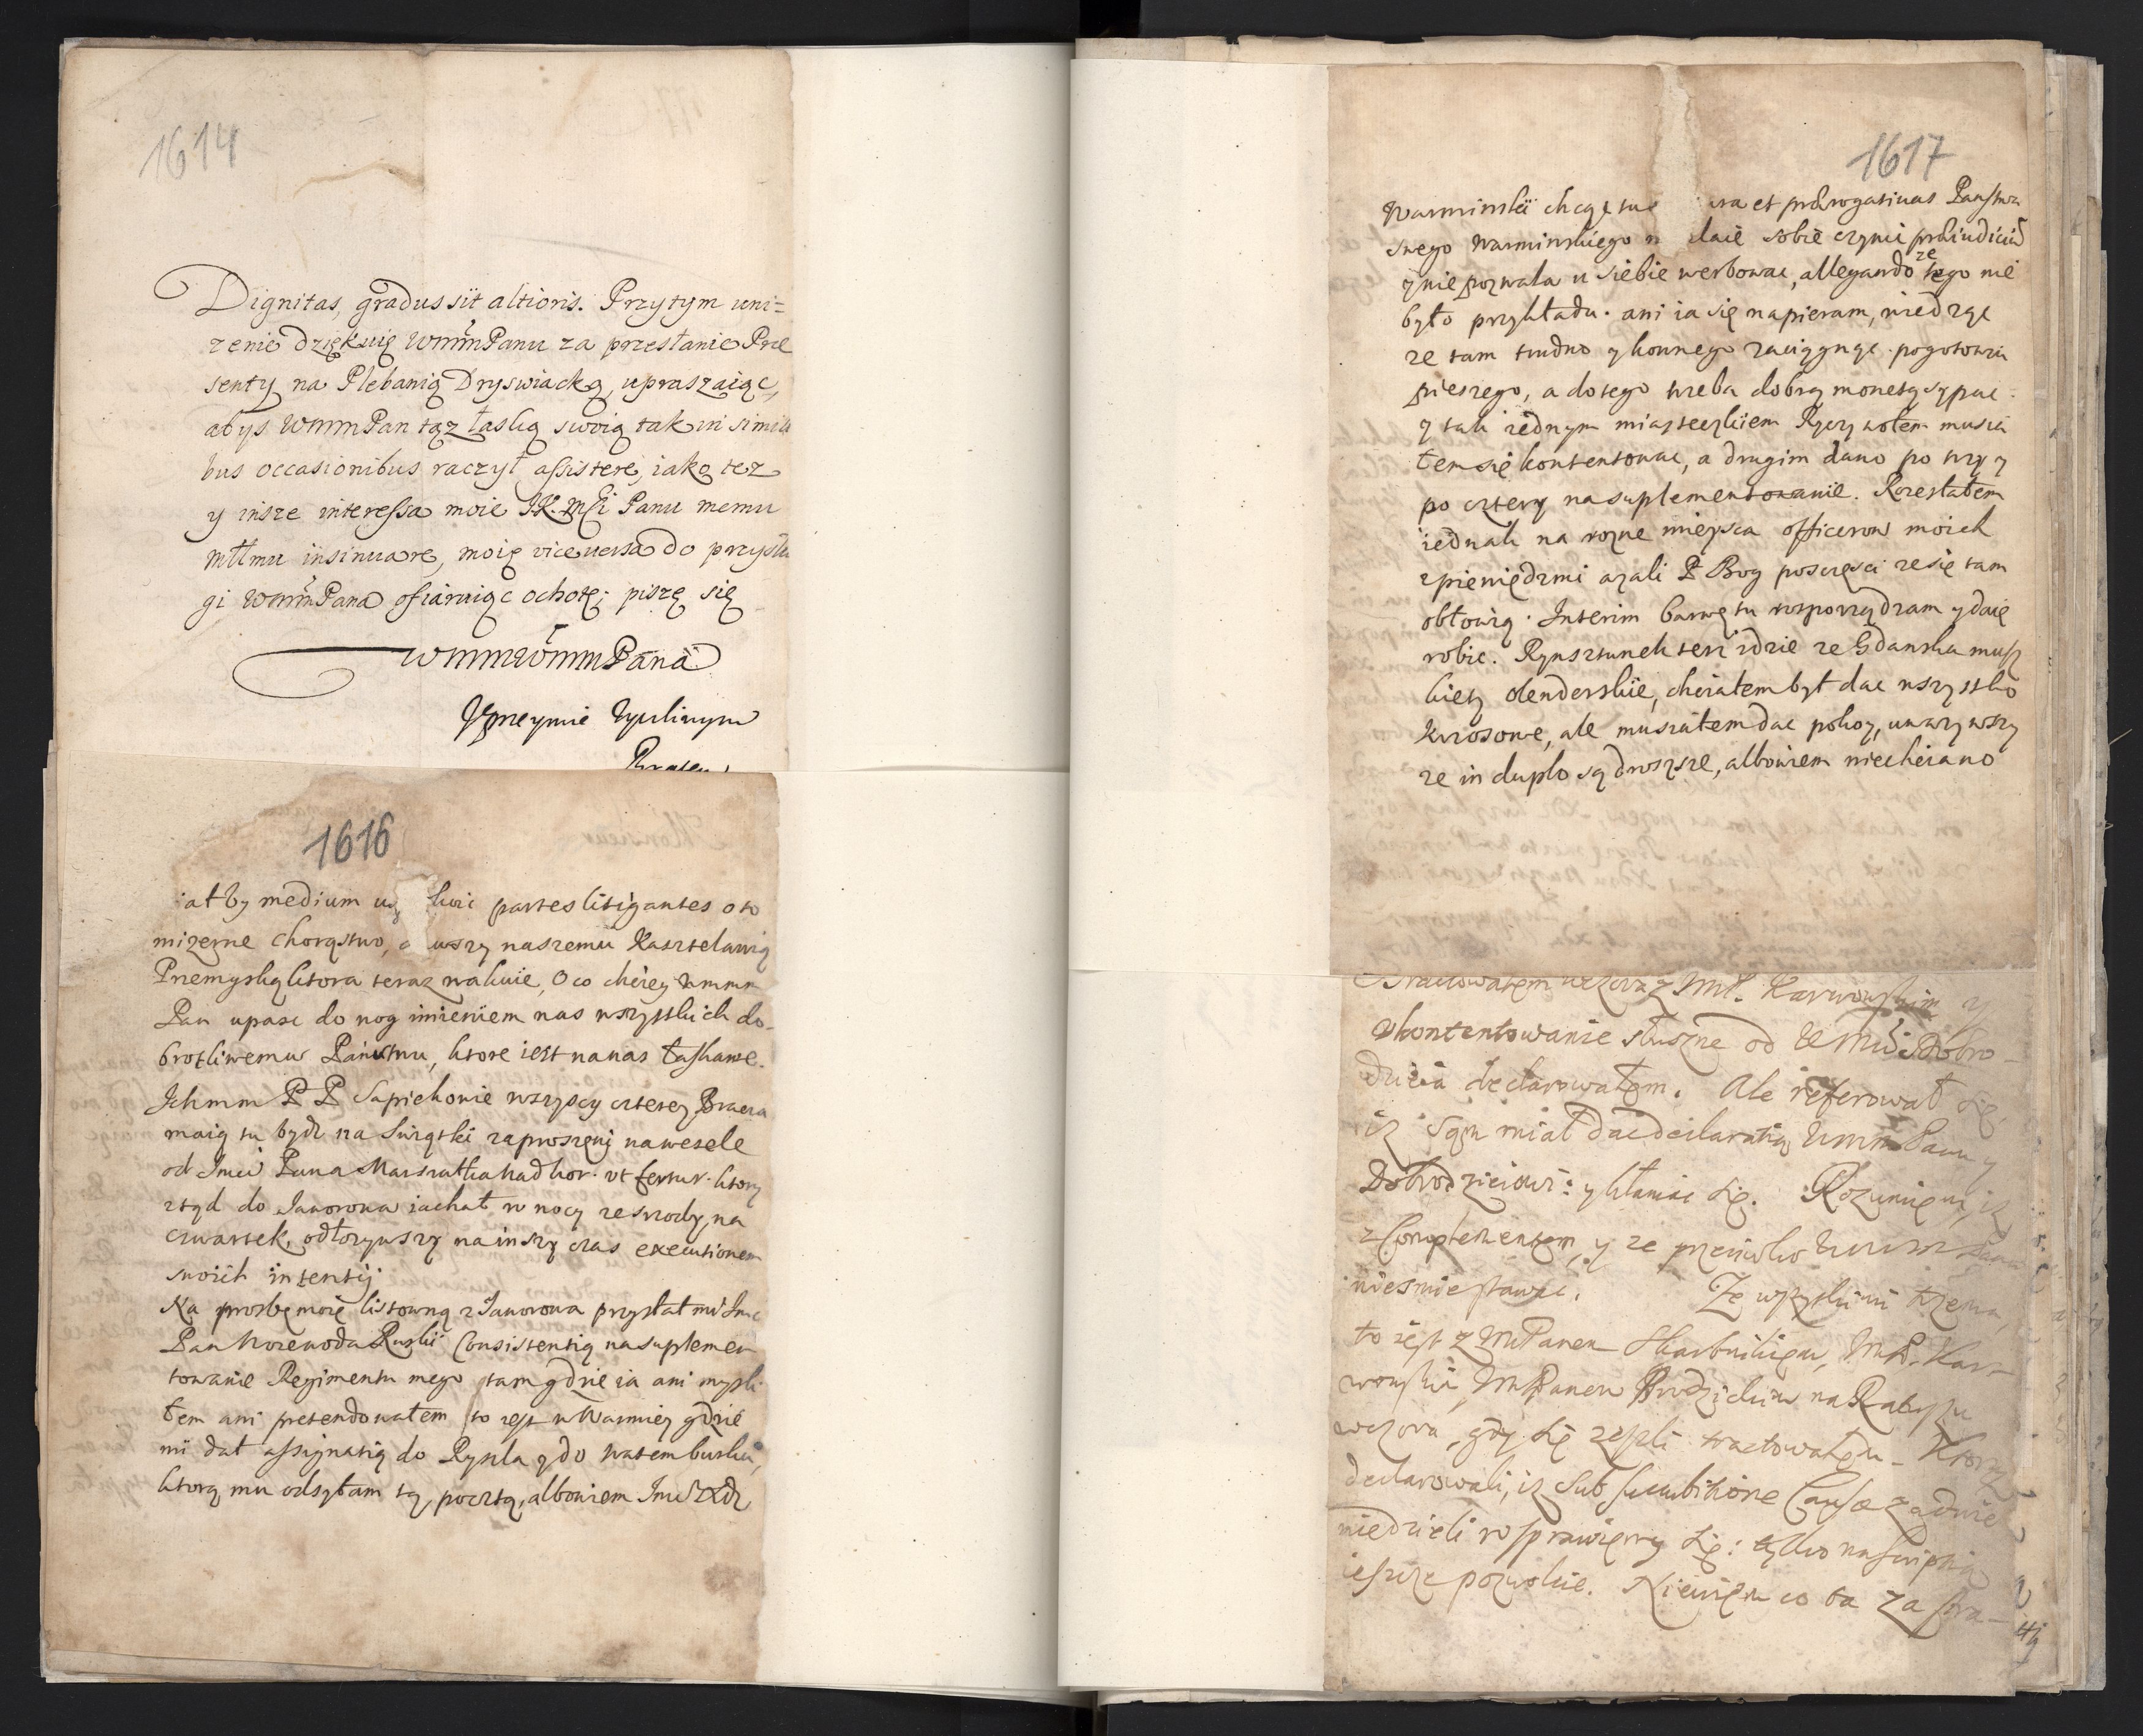 1614
Dignitas, gradus sit altioris. Przytym uni=
zenie dziękuię WmmPanu za przesłanie Pre
senty na Plebanią Dryswiacką, upraszaiąc,
abys WmmPan tąz łaską swoią tak in simili
bus occasionibus raczył assistere, iako tez
y insze interessa moie JK. Mśći Panu memu
Młłmu insinuare, moię vice versa do przysłu
gi WmmPana ofiaruiąc ochotę; piszę się
WmmWmmPana
Uprzeymie Zyczliwym
1616
iałby medium partes litigantes o to
mizerne Chorąstwo, wszy naszemu Kasztelanią
Przemyską ktora teraz wakuie, O co chciey Wmmm
Pan upasc do nog imieniem nas wszystkich do-
brotliwemu Państwu, ktore iest na nas łaskawe.
Ichmm P P Sapiehowie wszyscy czterey Bracia
maią tu bydz na Swiątki zaproszeni na wesele
od Jmci Pana Marszałka Nadwor. vt fertur. ktory
ztąd do Jaworowa iachał w nocy ze srzody, na
czwartek, odłozywszy na inszy czas executionem
swoich intentij
Na prozbę moię listowną z Jaworowa przysłał mi Jmc
Pan Woiewoda Ruski Consistentią na suplemen
towanie Regimentu mego tam gdzie ia ani mysli
łem ani pretendowałem to iest w Warmiey gdzie
mi dał assignatią do Ryszla y do Watemburku,
ktorą mu odsyłam tą pocztą, albowiem Jmć Xdz
1617
Warminski chcąc ura et praerogatiuas Panstwa
swego Warminskiego daie sobie czynic praeiudicium
y nie pozwala u siebie werbowac, allegando ze tego nie
było przykładu. ani ia się napieram, wiedząc
ze tam trudno y konnego zaciągnąc pogotowiu
pieszego, a do tego trzeba dobrą monetą sypac.
y tak iednym miasteczkiem Ryczywołem musia
łem się kontentowac, a drugim dano po trzy y
po cztery na suplementowanie. Rozesłałem
iednak na rozne mieysca officerow moich
z pieniędzmi azali P Bog poszczęsci ze się tam
obłowią. Interim barwę tu rozporządzam y daię
robic. Rynsztunek tesz idzie ze Gdanska musz
kiety olenderskie, chciałem był dac wszystko
Krosowe, ale musiałem dac pokoy, uwazywszy
ze in duplo są drozsze, albowiem niechciano
Tractowałem wczora z ImP. Karwowskim y
Ukontentowanie słuszne od WMści Dobro-
dzieia declarowałem. Ale referował się
iz sam miał dac declaratią Wmm Panu y
Dobrodzieiowi: y kłaniac się. Rozumiem, iz
z Complementem, y ze przeciwko Wmmm Panu
niesmie stawac. Ze wszystkimi trzema,
to iest z ImPanem Skarbnikiem, ImP. Kar-
wowski, ImPanem Brodzickim na Ratuszu
wczora, gdy się zeszli tractowałem. Ktorzy
declarowali, iz sub succubitione Causae za dwie
niedzieli rosprawiemy się: tylko
ieszcze pozwolcie. Niewiem co ta za spra-